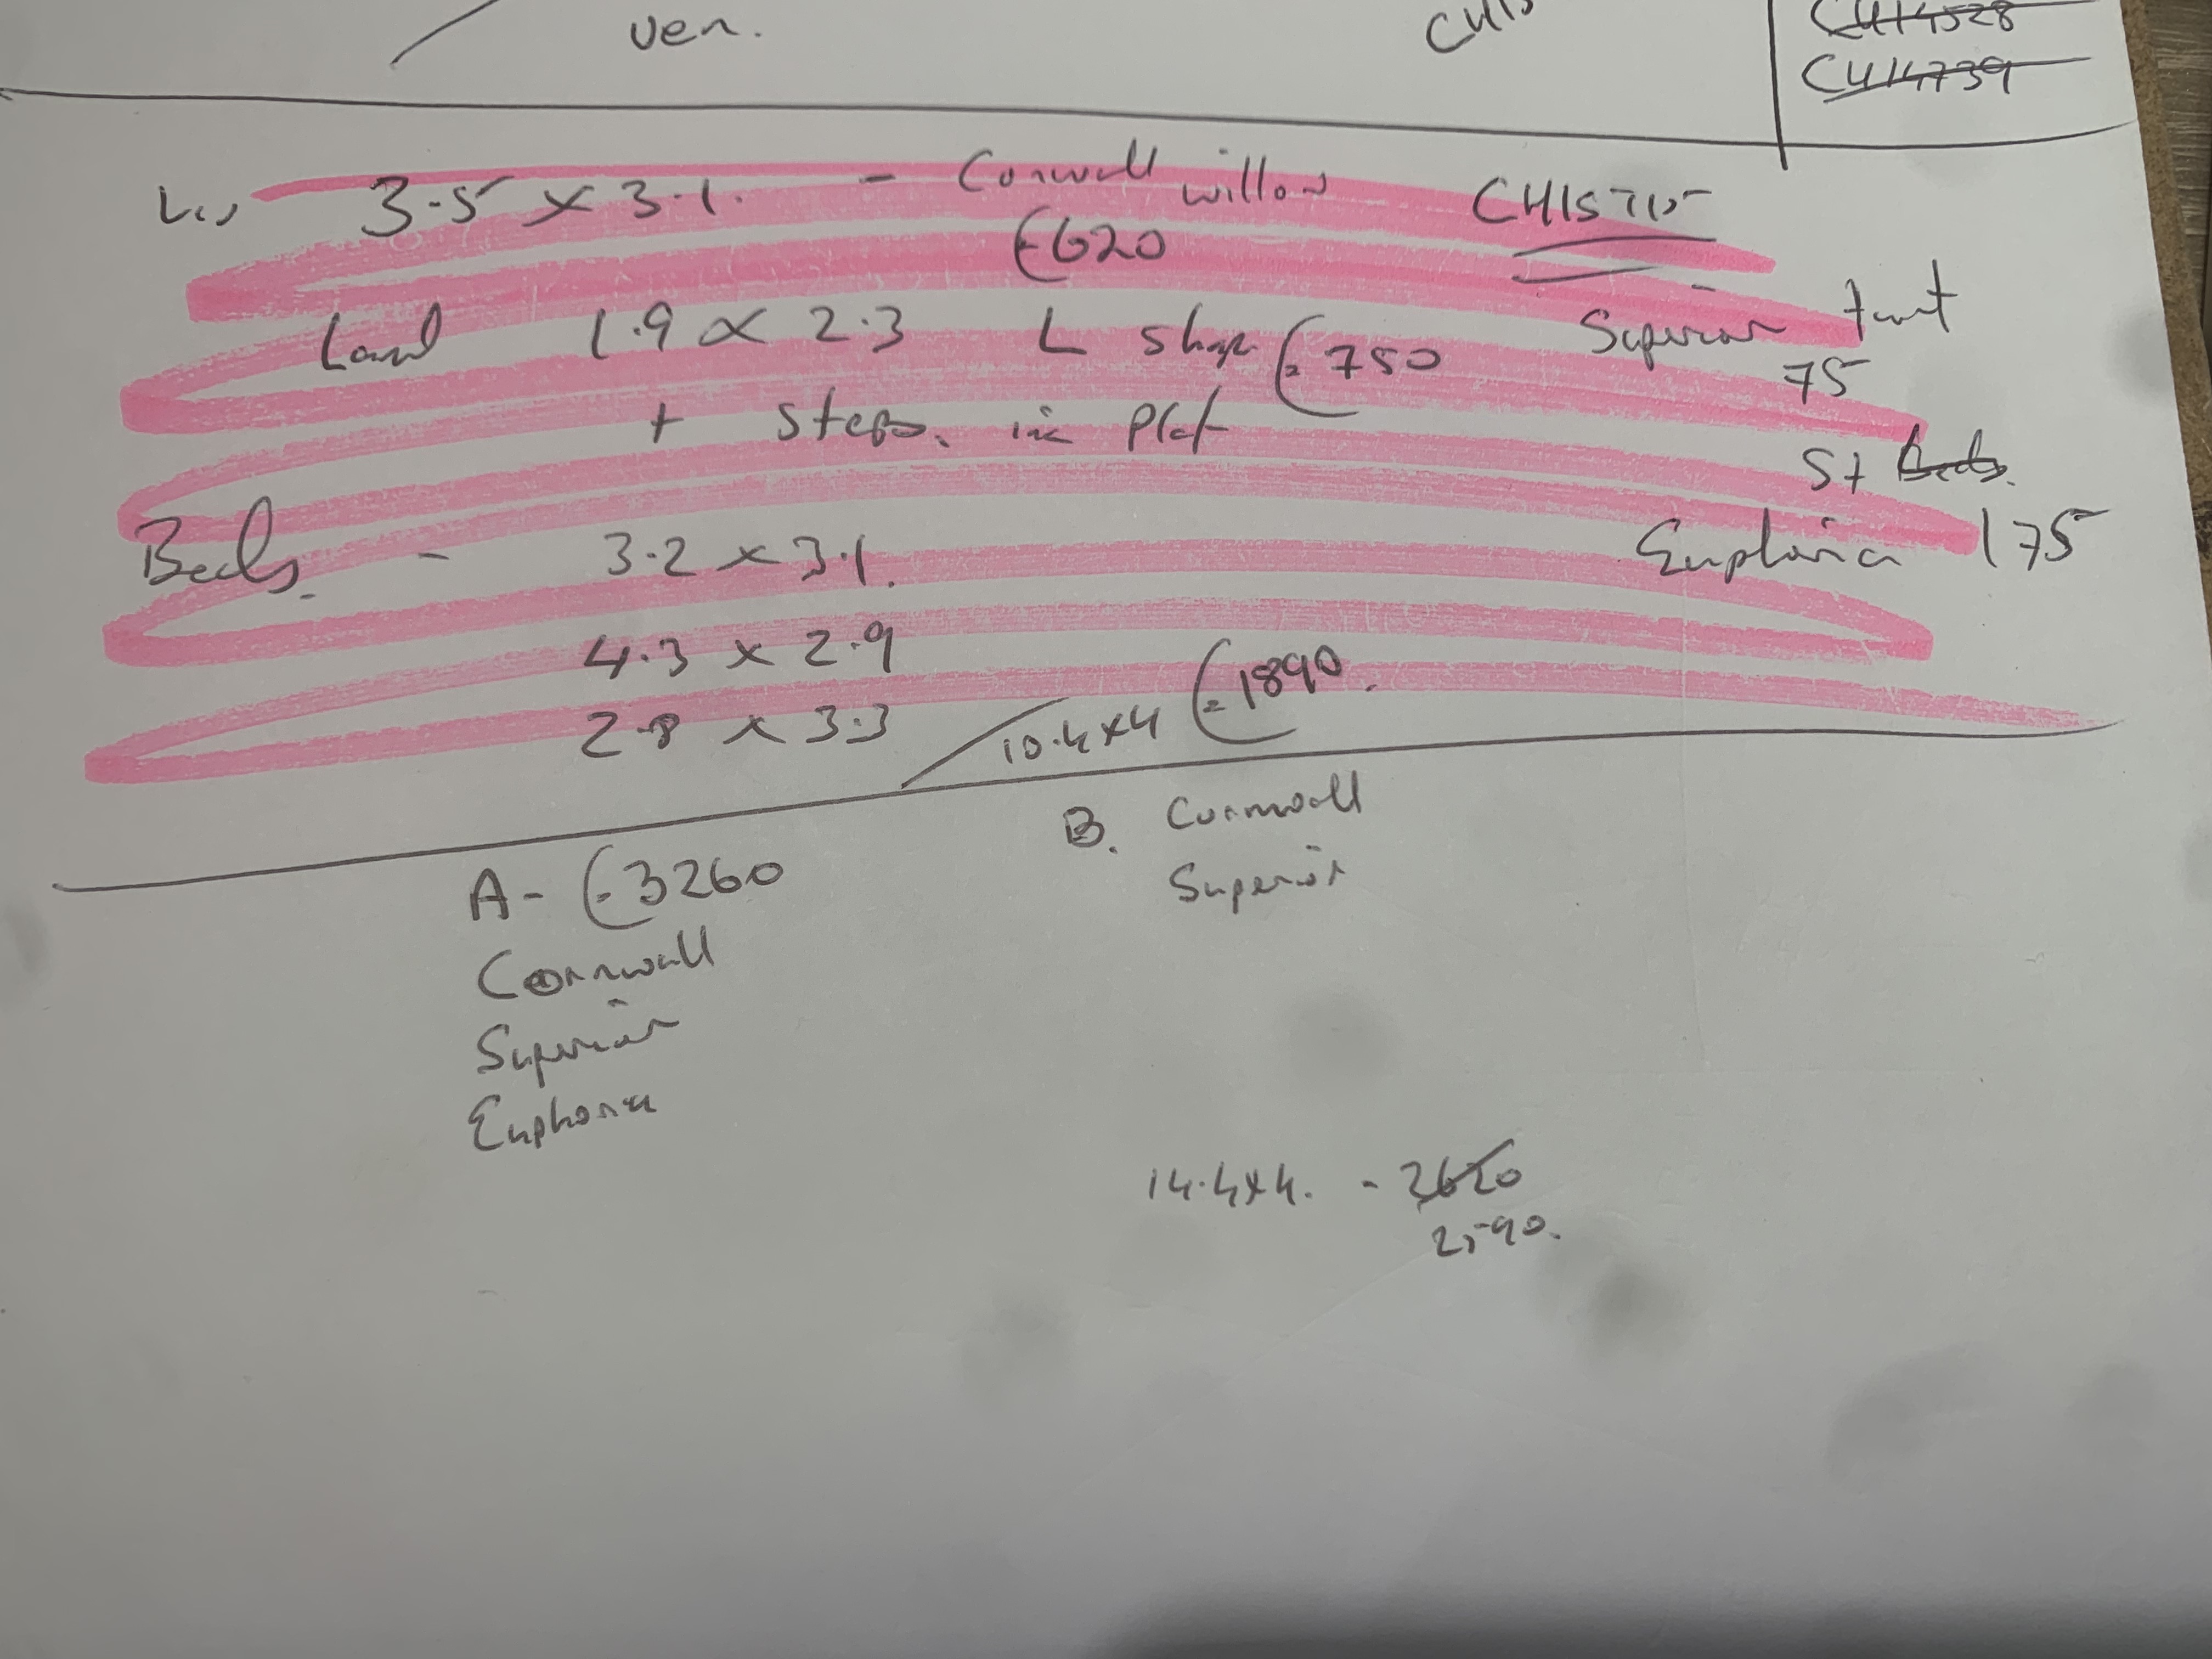 ven.
CH15
CH14528
CH14739
3.5 x 3.1. - Cornwall willow
£620
CH15715
Land 1.9 x 2.3 L shape £750
+ steps. in Plat
Superior
75
St Beds.
Euphoria 175
Beds. - 3.2 x 3.1.
4.3 x 2.9
2.8 x 3.3
10.4x4 £1890.
A - £3260
Cornwall
Superior
Euphoria
B. Cornwall
Superior
14.4x4. - 2620
2590.